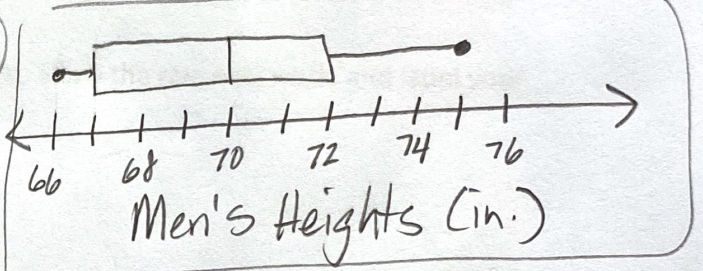 66 68 70 72 74 76
Men's Heights (in.)